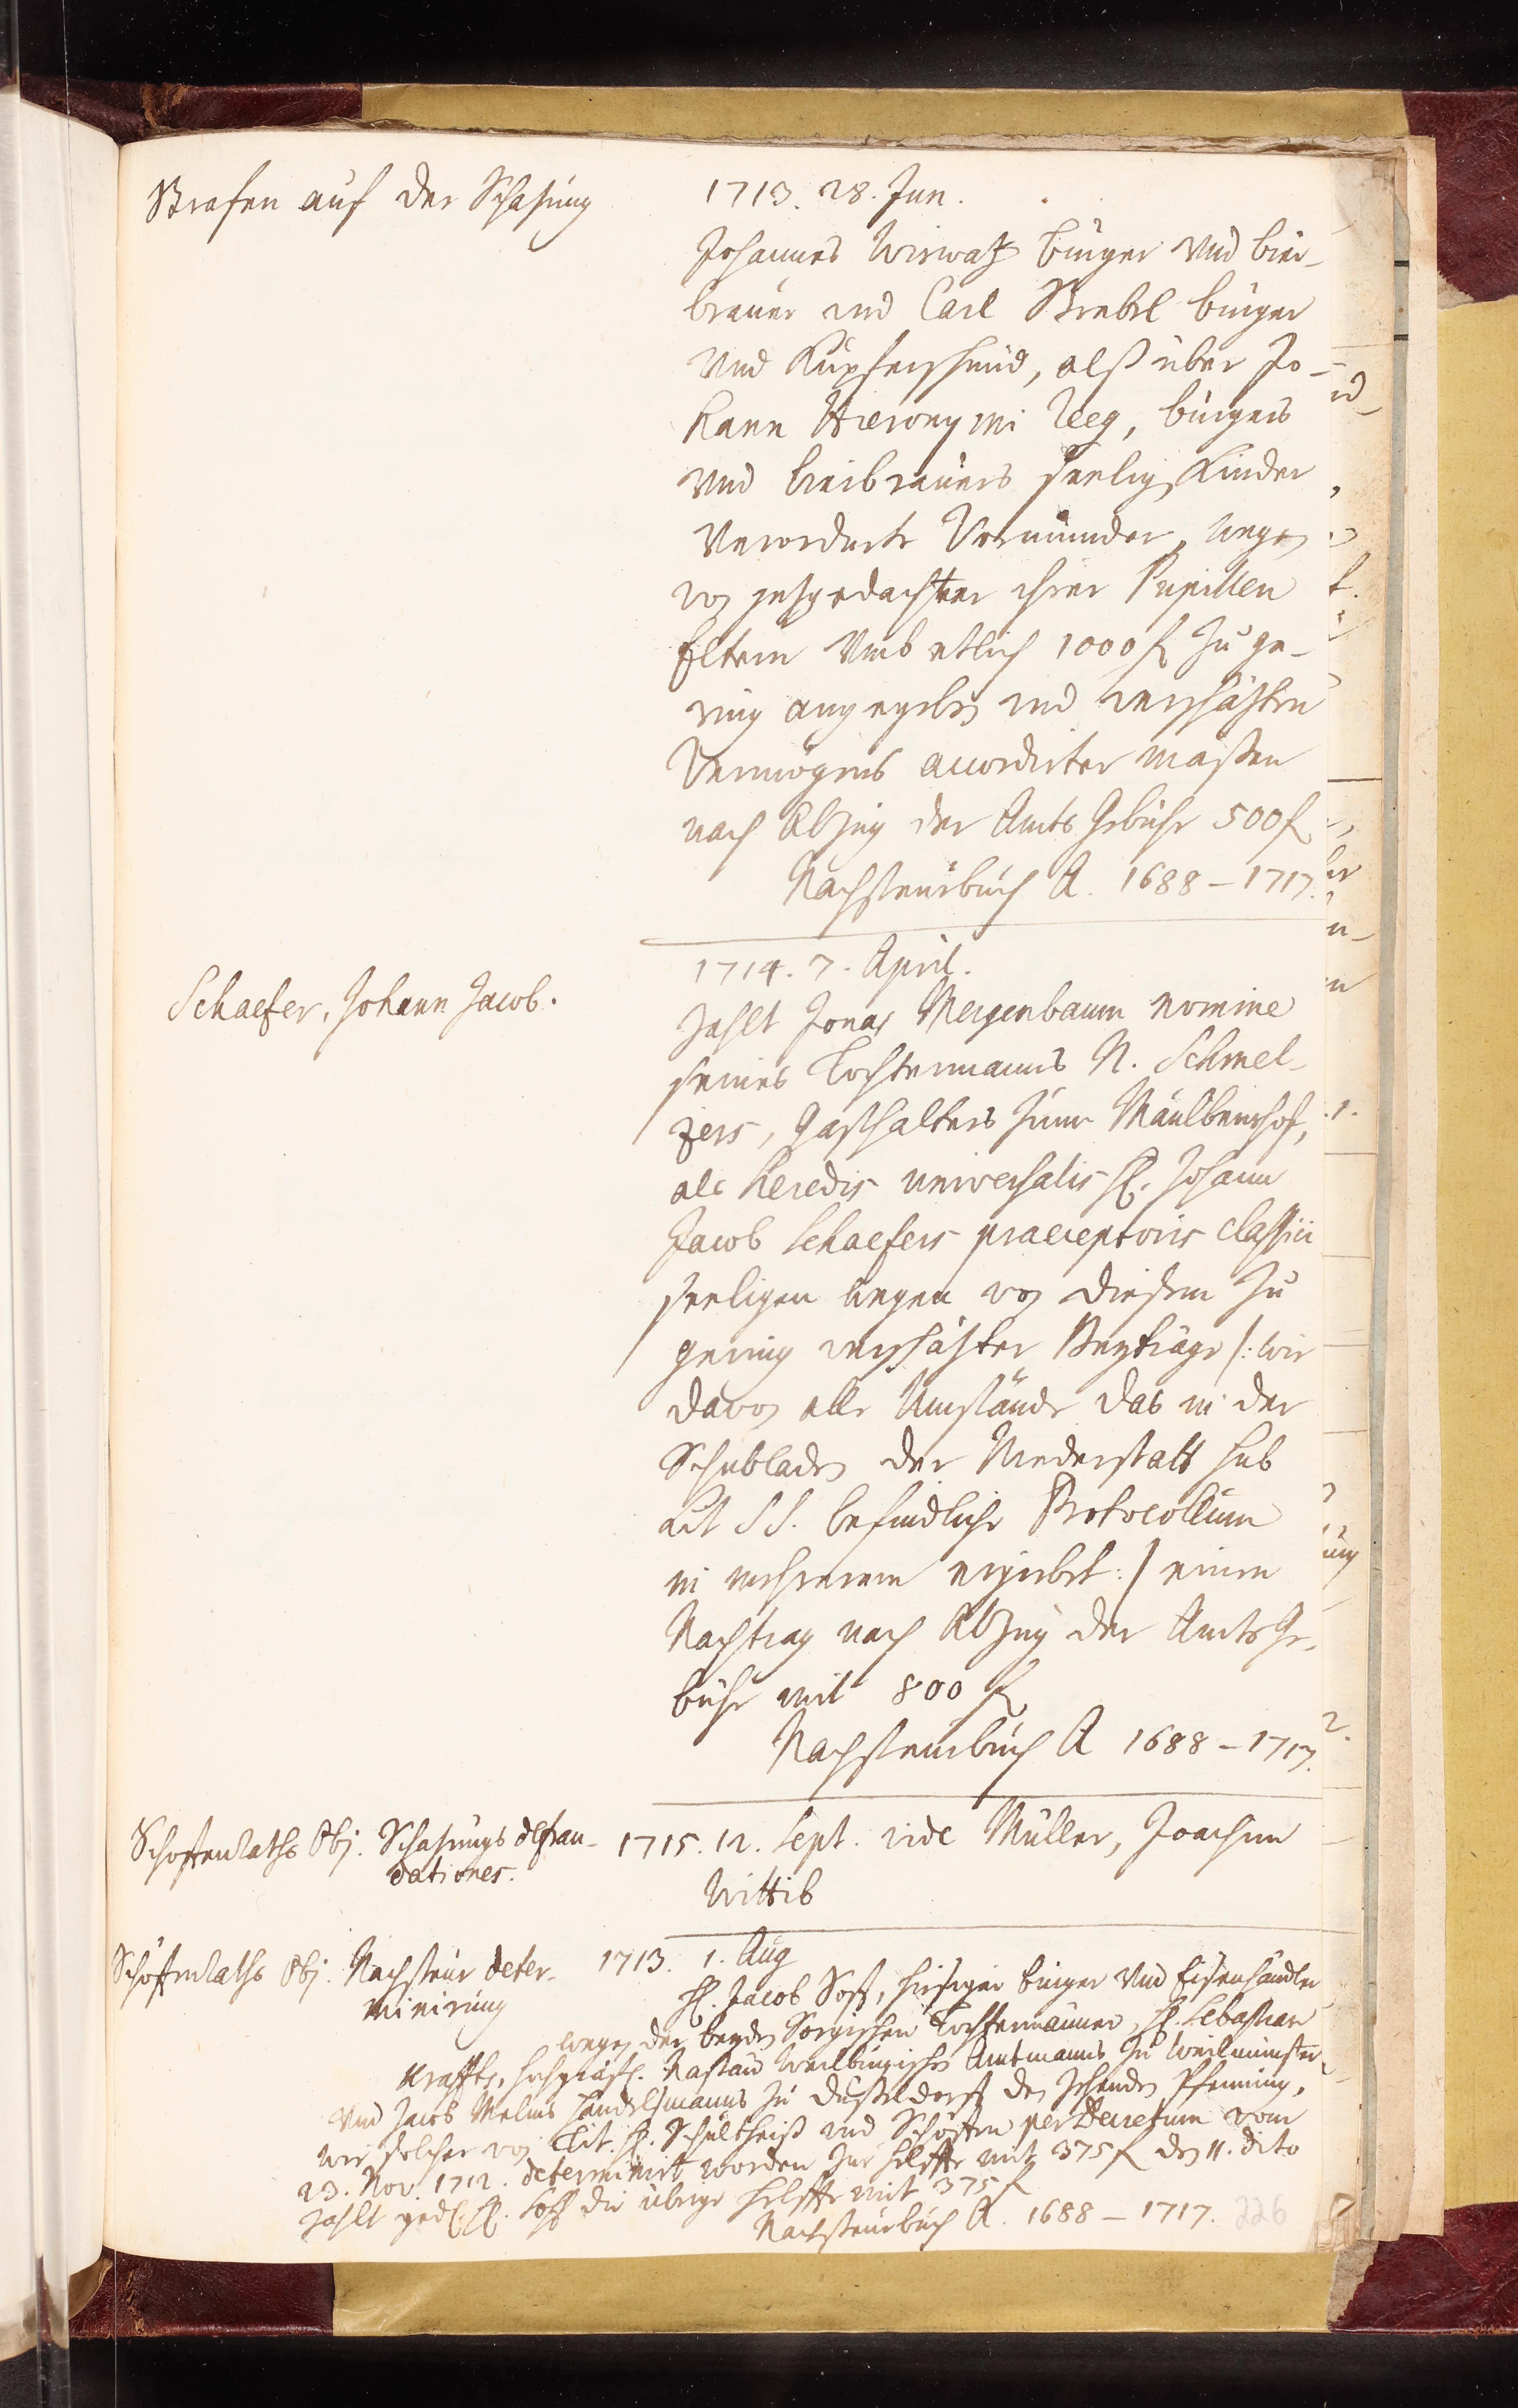 Strafen auf der Schatzung
1713. 28. Jun.
Johannes Wirwatz bürger und bier-
brauer und Carl Strebel bürger
und Kupferschmid, alß über Jo-
hann Hieronymi Reeg, bürgers
und bierbrauers seelig Kinder
Verordnete Vormünder, wegen
von jetzgedachter ihrer Pupillen
Eltern umb etlich 1000 f zu ge-
ring angegeben und verschätzten
Vermögens accordirter maßen
nach Abzug der Amts Gebühr 500 f
Nachsteurbuch A. 1688 – 1717.
Schaefer, Johann Jacob.
1714. 7. April.
zahlt Jonas Mergenbaum nomine
seines Tochtermanns N. Schmel-
zers, Gasthalters zum Maulbeerhof,
als heredis universalis H. Johann
Jacob Schaefers praeceptoris classici
seeligen wegen von diesem zu
gering verschätzter Beyträge /: wie
davon alle Umstände das in der
Schubladen der Niederstatt sub
Lit SS. befindliche Protocollum
in mehrerem ergiebet :/ einen
Nachtrag nach Abzug der Amts Ge-
bühr mit 800 f
Nachsteurbuch A 1688 – 1717.
Schöffenraths Obj. Schatzungs defrau-
dationes.
1715. 12. Sept. vide Müller, Joachim
Wittib
Schöffenraths Obj. Nachsteur deter-
minirung
1713. 1. Aug
H. Jacob Soß, hiesiger bürger und Eisenhändler
wegen der beyden Sorgischen Tochtermänner, H. Sebastian
Kraffts, hochgräfl. Naßau Weilburgischen Amtmanns zu Weilmünster
und Jacob Melms Handelsmanns zu Dußeldorff den zehenden Pfenning,
wie solcher von Tit. H. Schultheiß und Schöffen per Decretum vom
23. Nov. 1712. determinirt worden zur helffte mit 375 f den 11. dito
zahlt ged. H. Soß die übrige helffte mit 375 f
Nachsteurbuch A. 1688 – 1717.
226